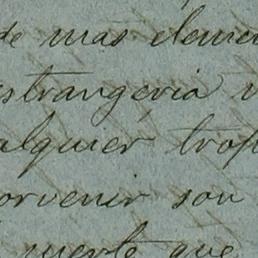 de mas eleme
estrangeria v
alquier trop
orvenir son
muerte que